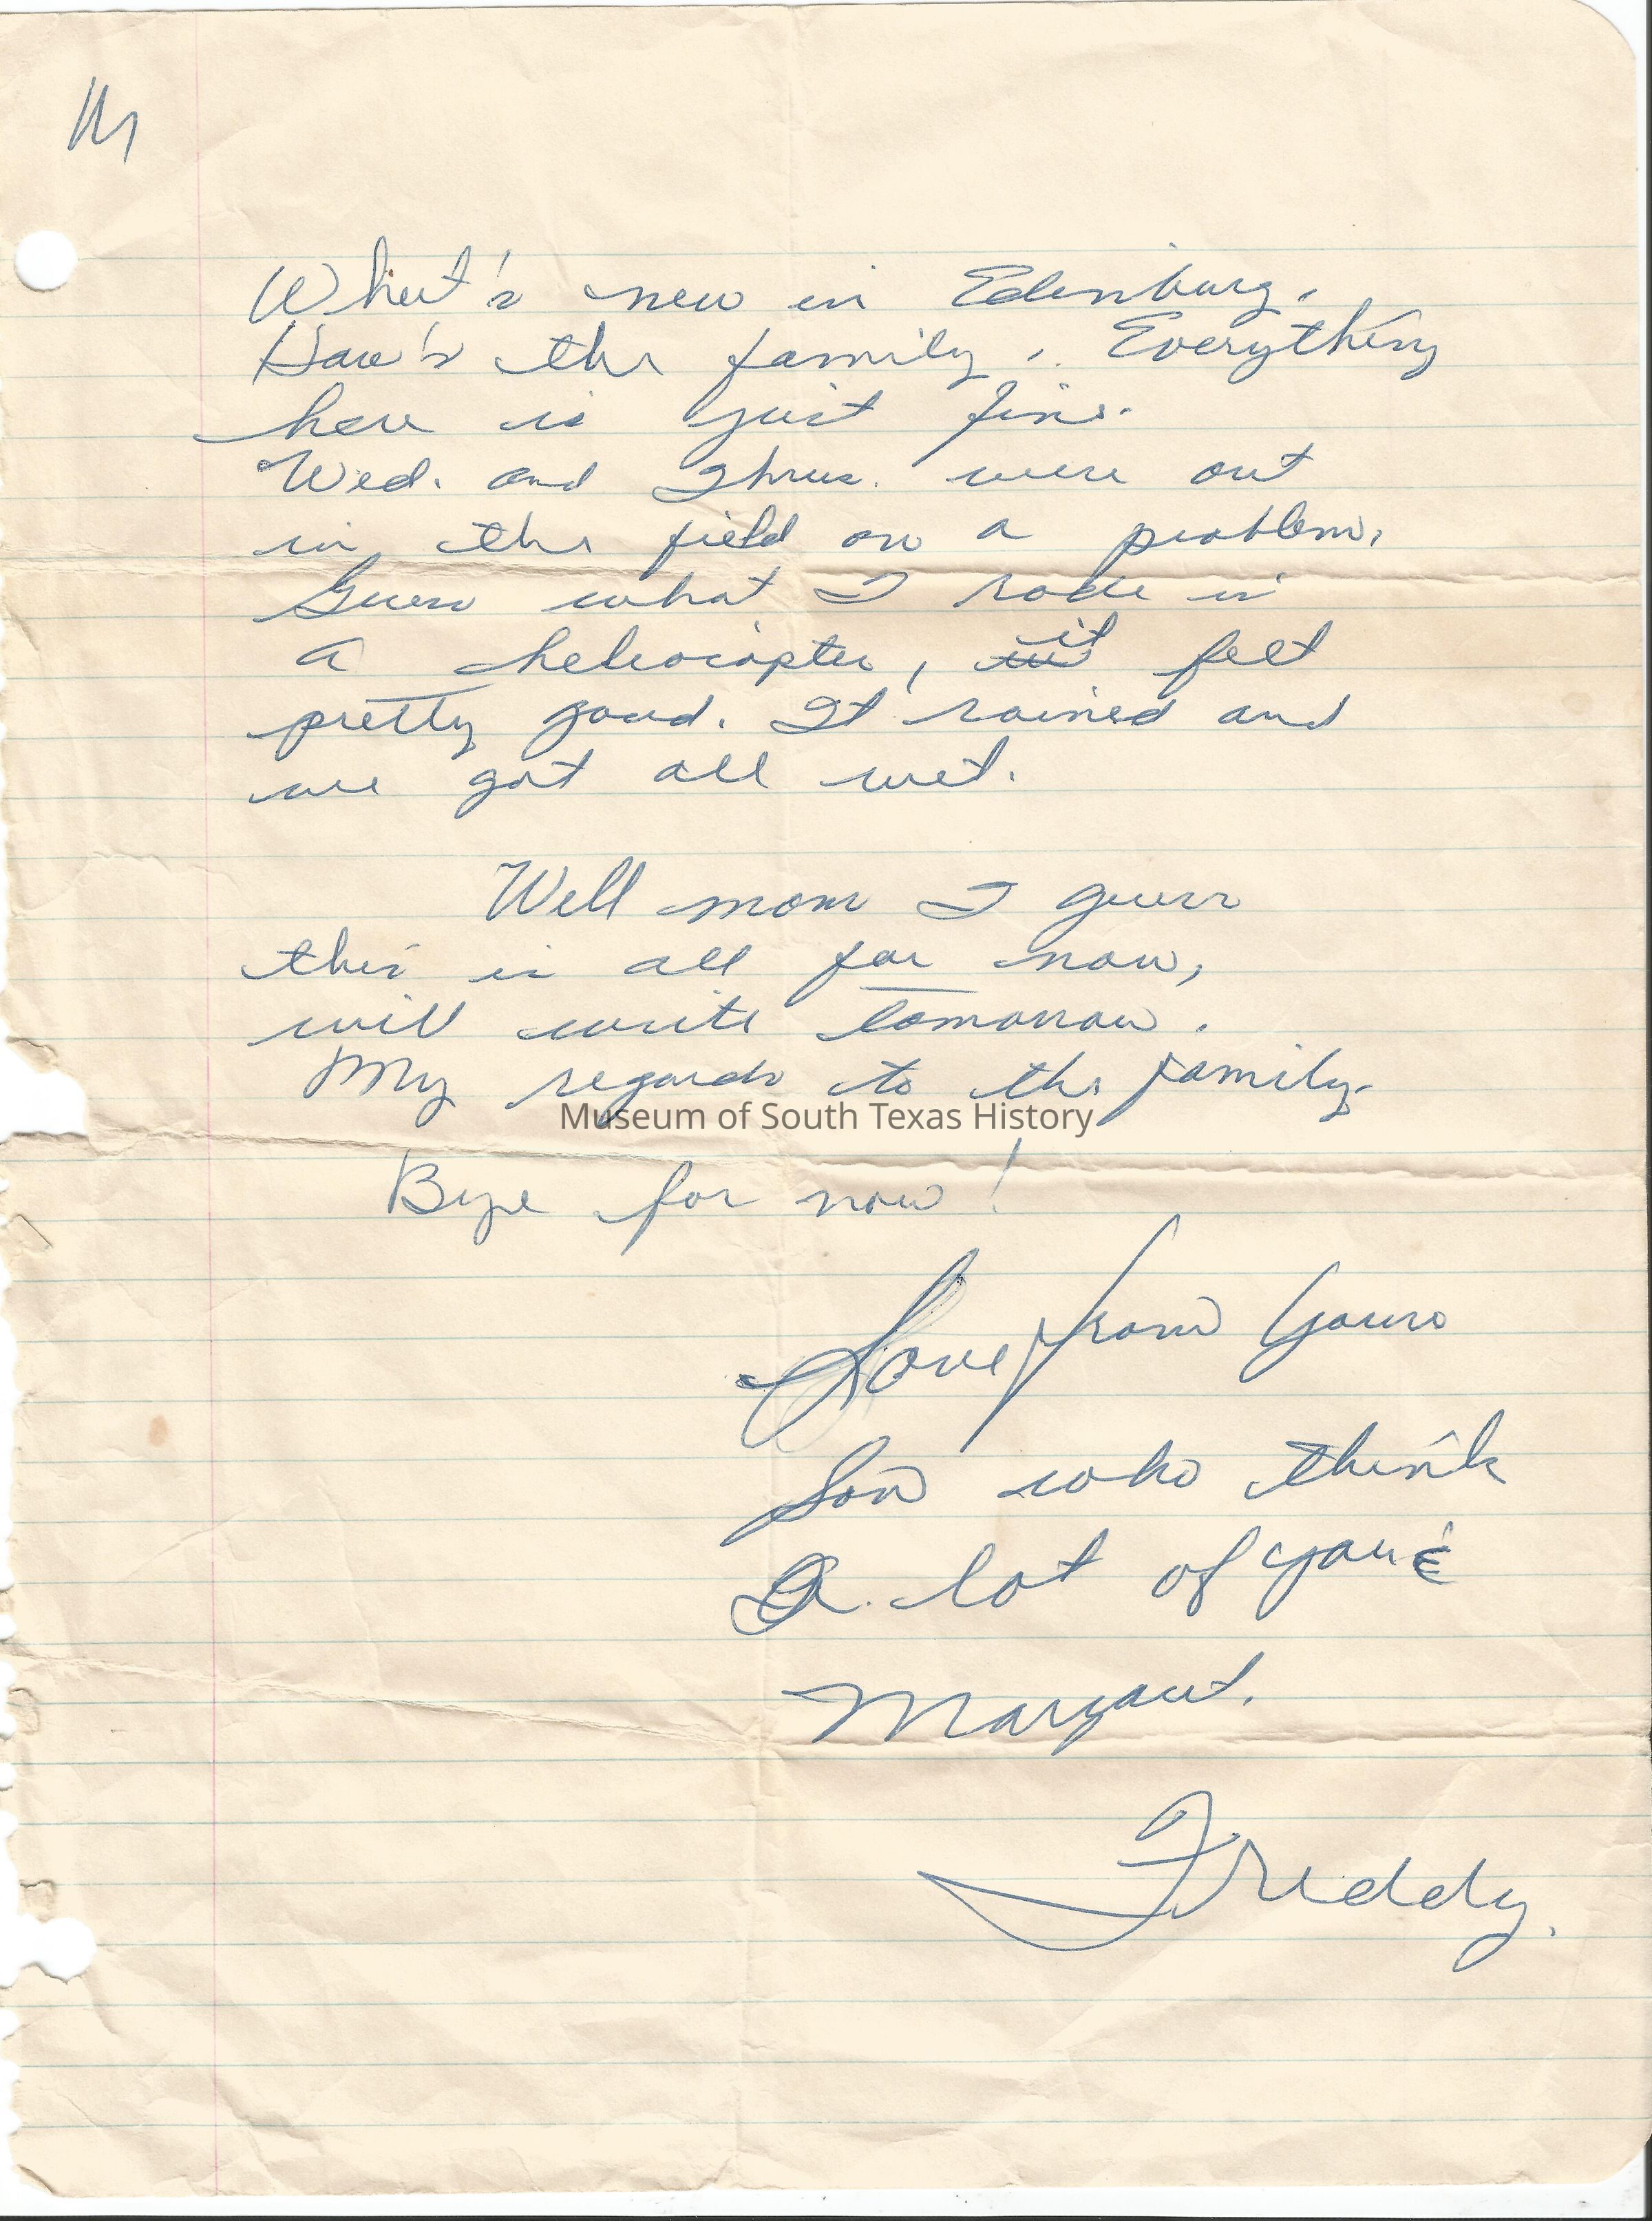 What's new in Edenburg.
How's the family. Everything
here is just fine.
Wed. and Thrus. were out
in the field on a problem.
Guess what I rode in
a heliocopter, it felt
pretty good. It rained and
we got all wet.
Well mom I guess
this is all for now,
will write tomorrow.
My regards to the family.
Museum of South Texas History
Bye for now!
Love from Yours
Son who think
a lot of you &
Margaret.
Freddy.